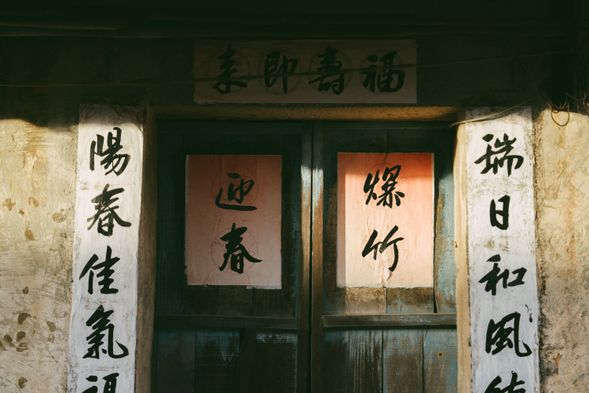 福壽即來
瑞日和風
爆竹
迎春
陽春佳氣福